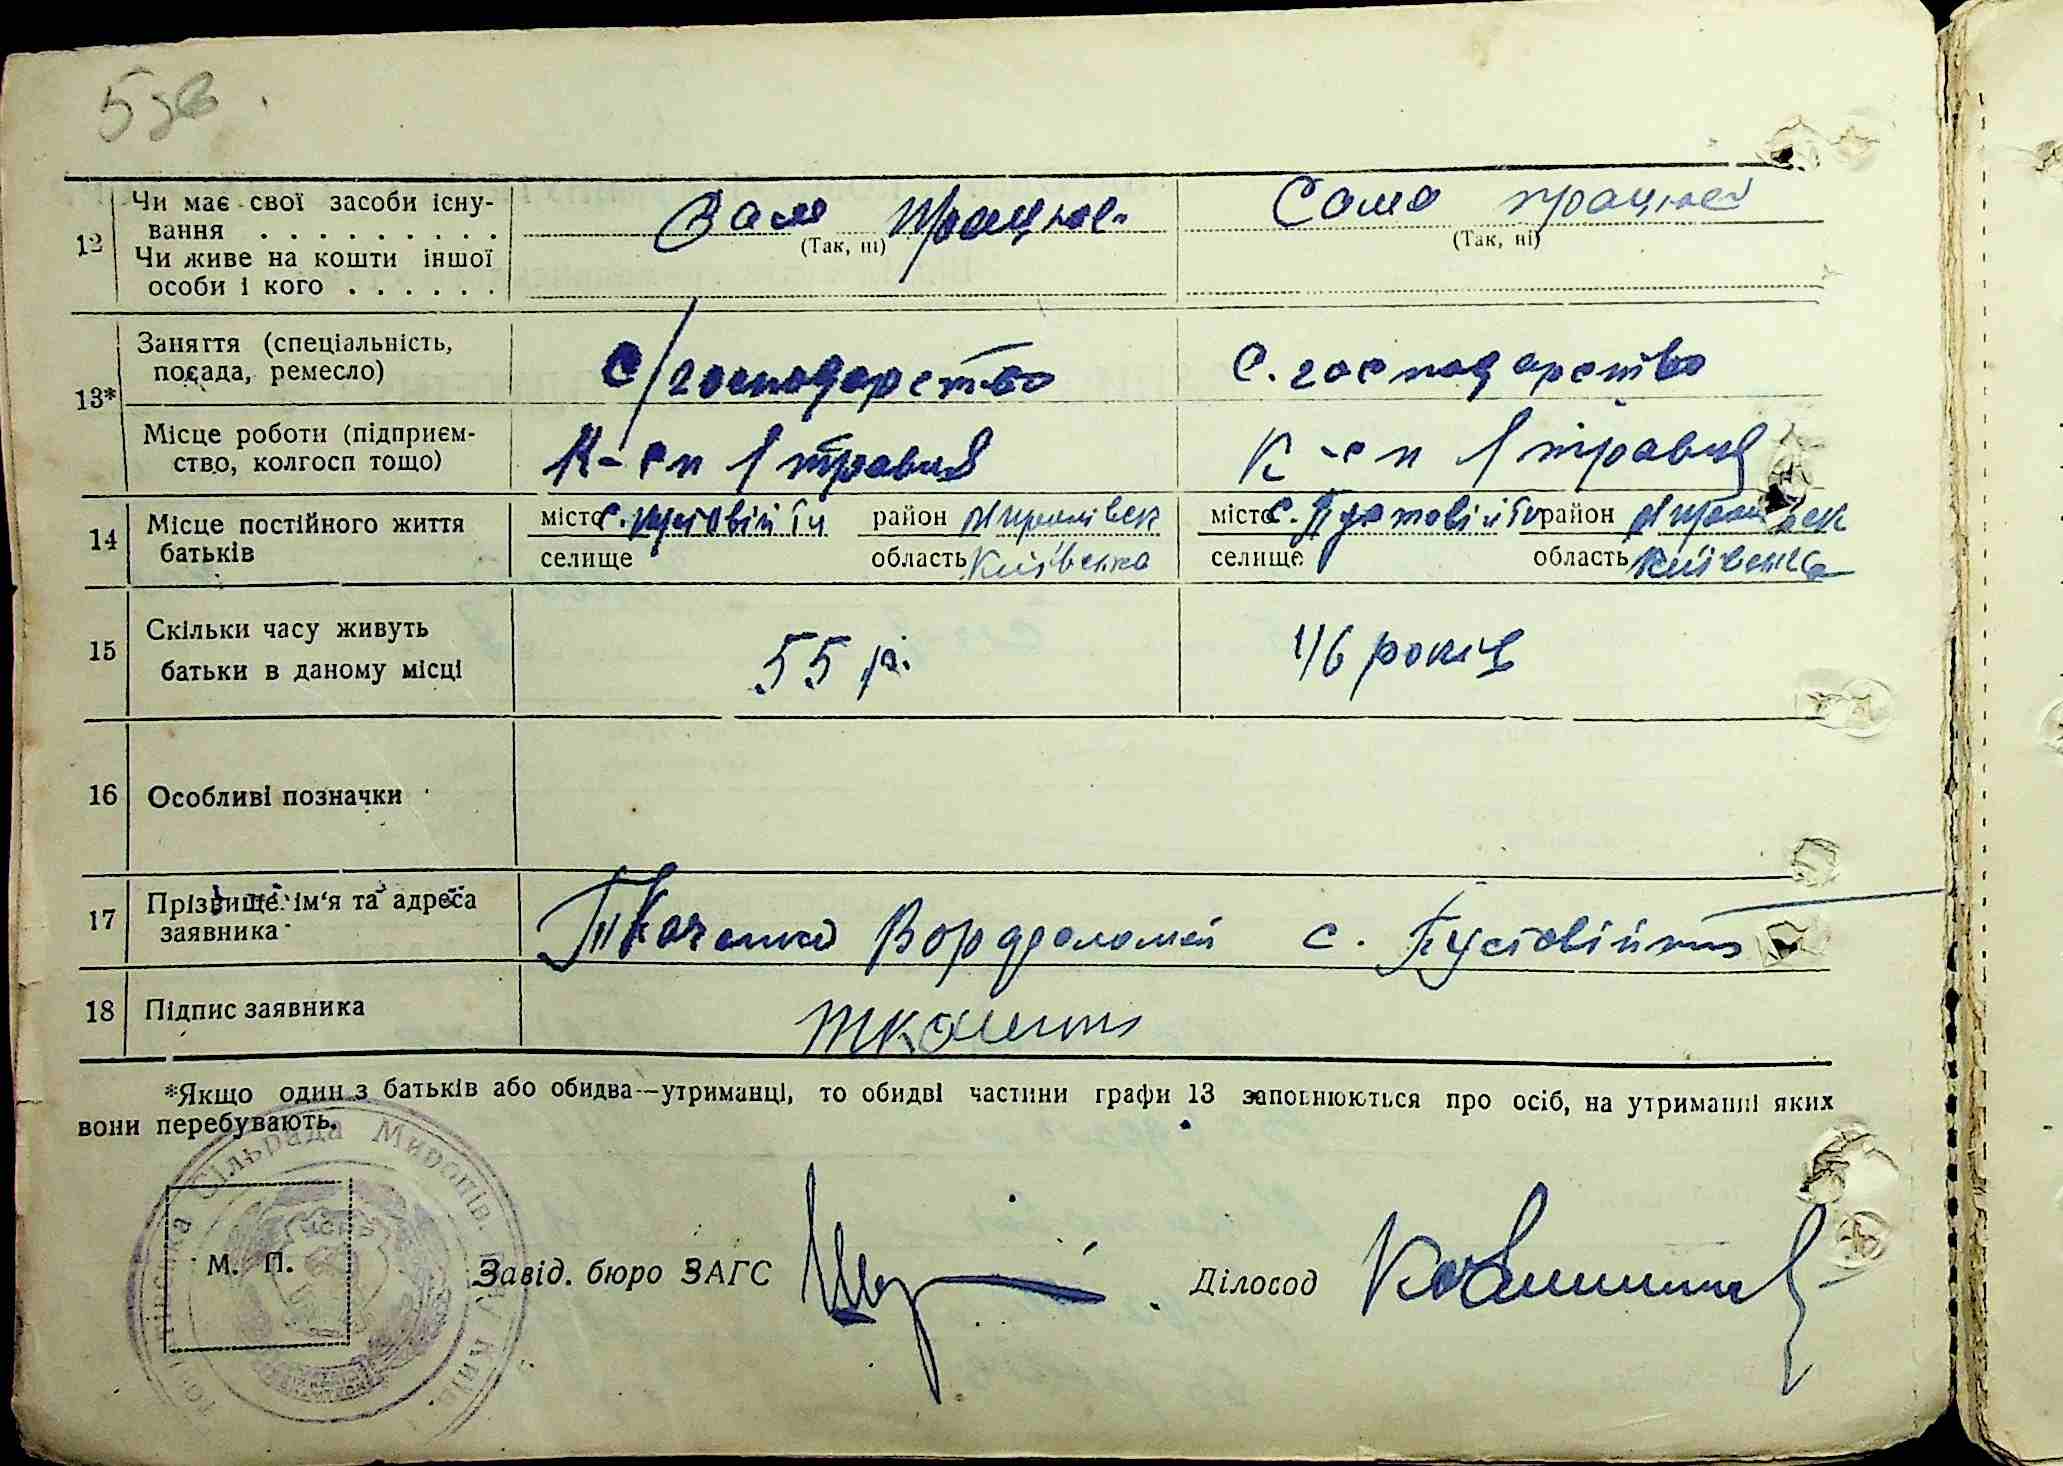 5 зв.
12 Чи має свої засоби існу-
вання . . . . . . . . . Сам працює Сама працює
(Так, ні) (Так, ні)
Чи живе на кошти іншої
особи і кого . . . . . .
13* Заняття (спеціальність,
посада, ремесло) С/господарство С. господарство
Місце роботи (підприєм-
ство, колгосп тощо) К-сп 1 травня К-сп 1 травня
14 Місце постійного життя
батьків
місто с. Пустовійти район Миронівськ місто с. Пустовійти район Миронівськ
селище область Київська селище область Київська
15 Скільки часу живуть
батьки в даному місці 55 р. 46 років
16 Особливі позначки
17 Прізвище ім'я та адреса
заявника Ткаченко Вардоломій с. Пустовійти
18 Підпис заявника
*Якщо один з батьків або обидва—утриманці, то обидві частини графи 13 заповнюються про осіб, на утриманні яких
вони перебувають.
Сільрада Миронів.
М. П. Завід. бюро ЗАГС Діловод